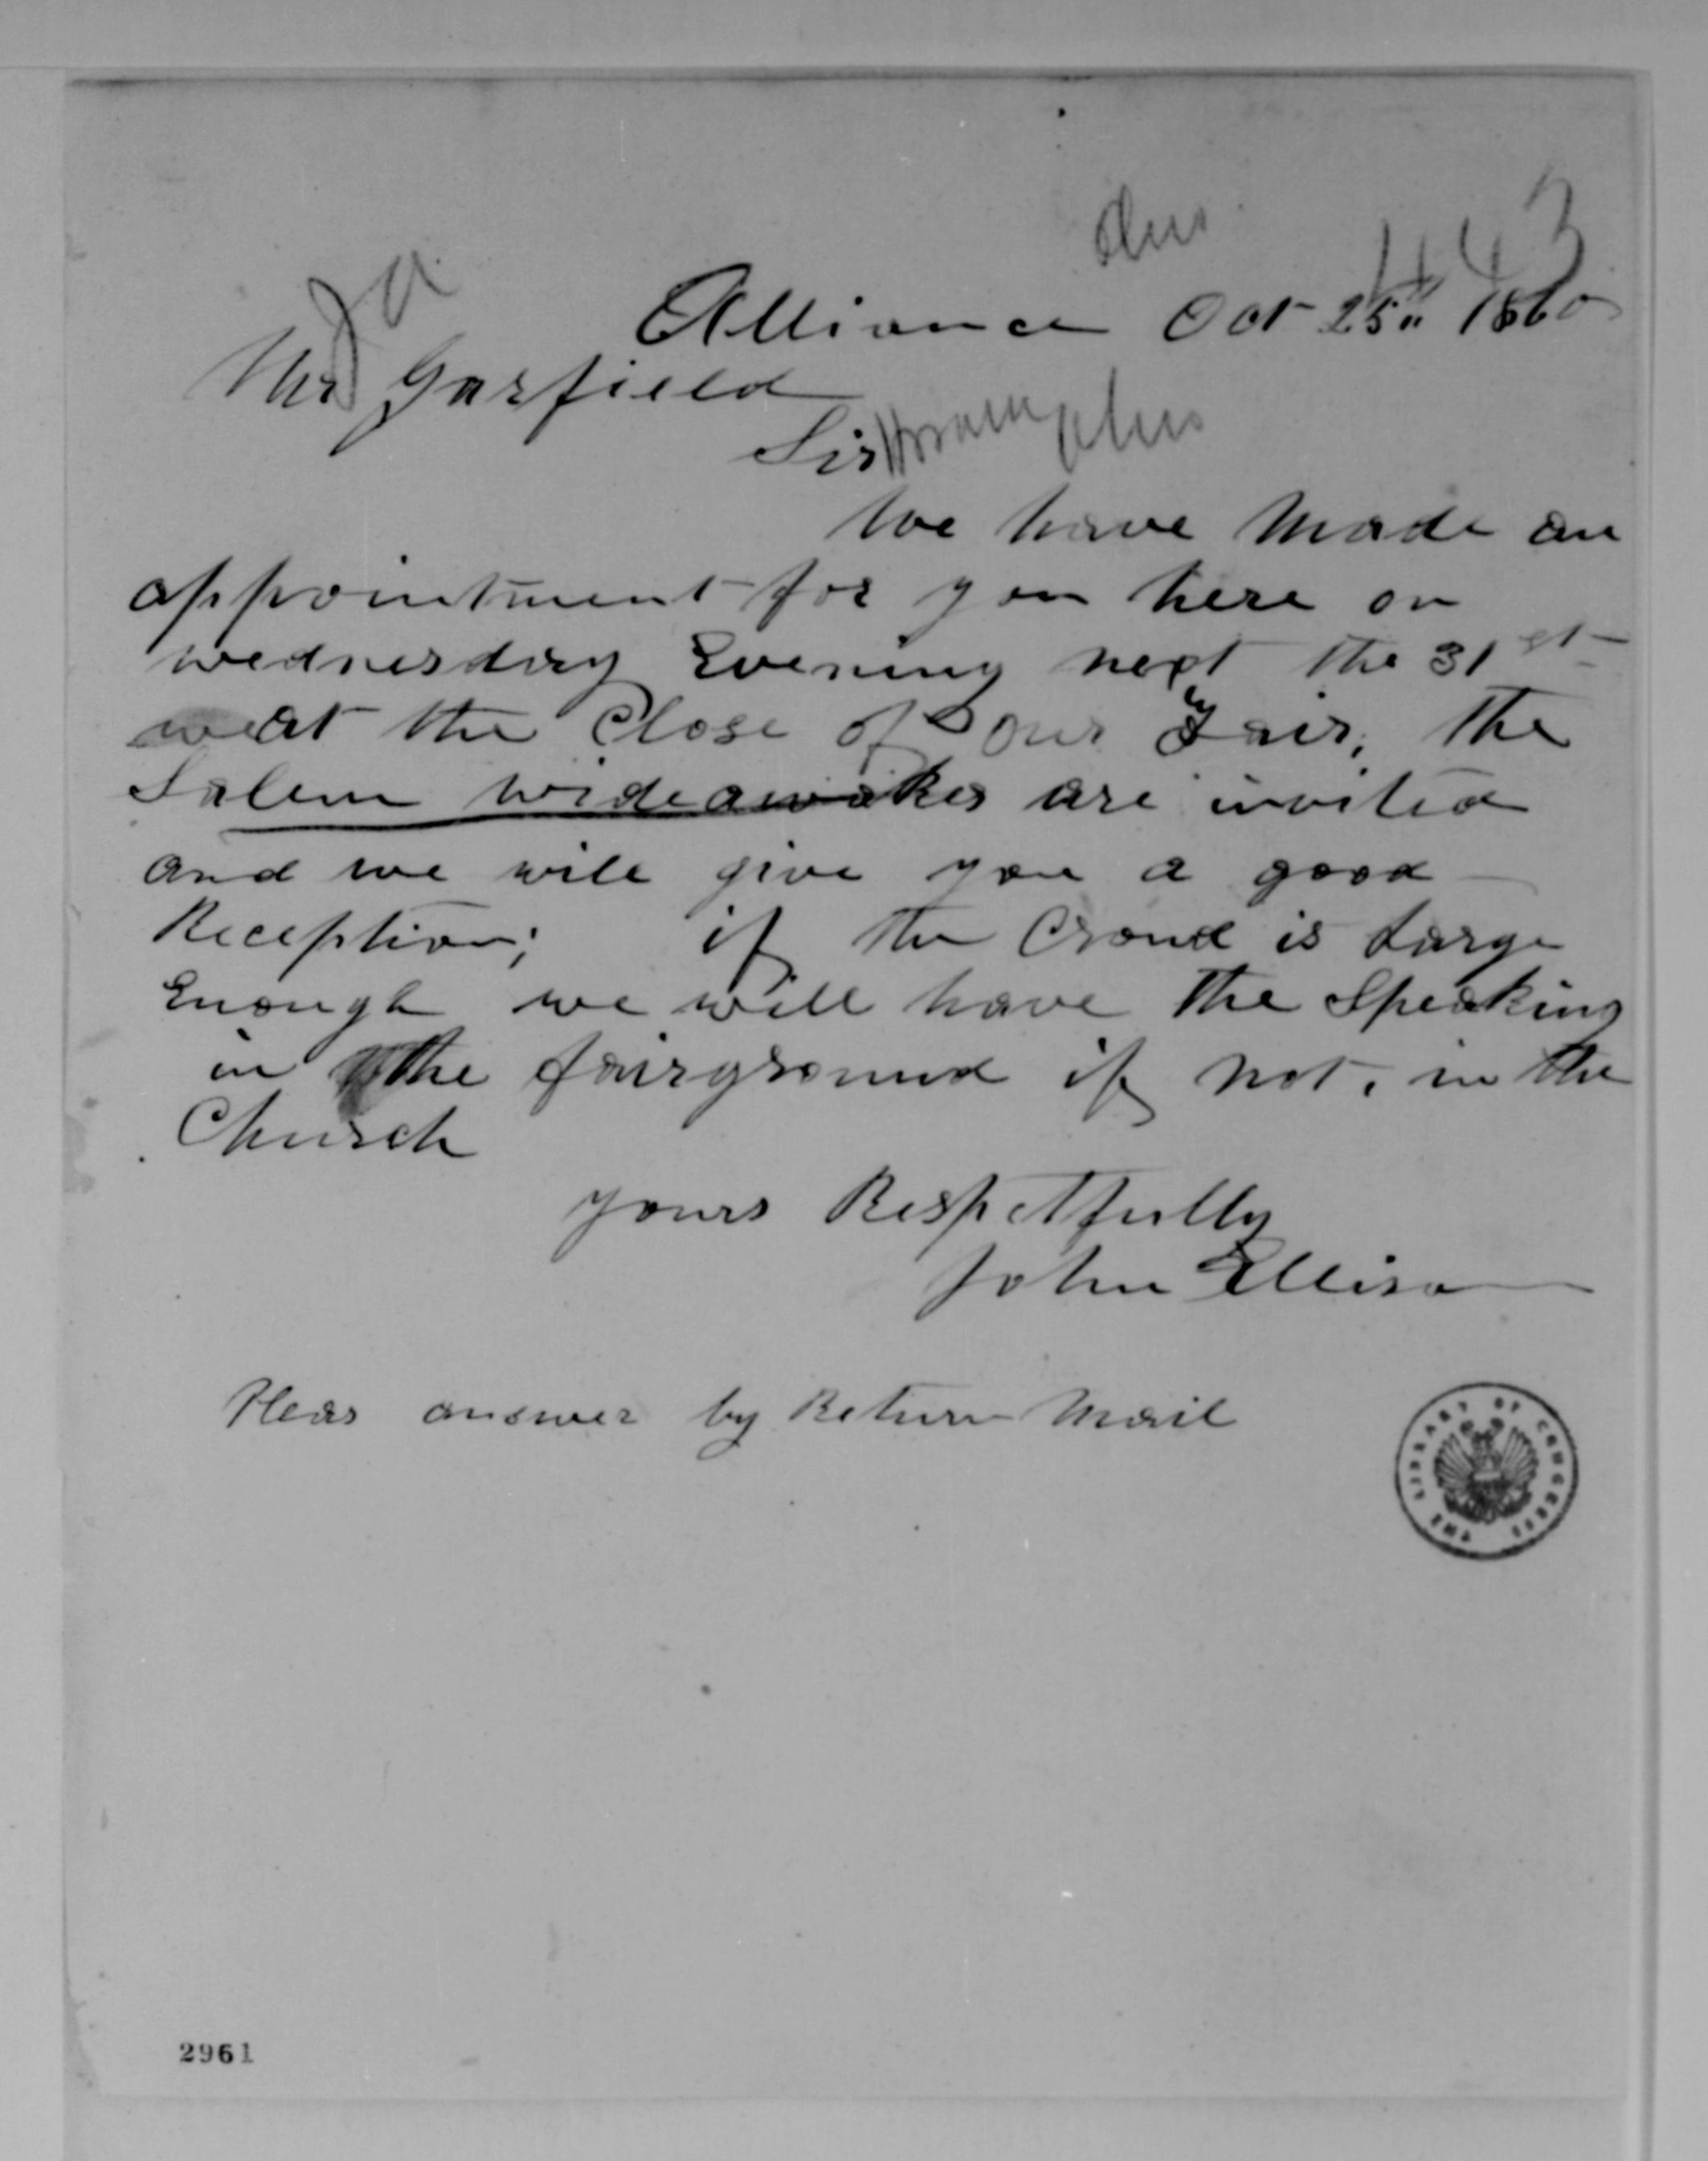 Ans
443
Ja
Alliance Oct 25" 1860
Mr Garfield
Sir
We have made an
appointment for you here on
wednesday Evening next the 31st
at the Close of our Fair, The
Salem wideawakes are invited
and we will give you a good
Reception; if the Croud is Large
Enough we will have the Speaking
in the fairground if not, in the
Church
yours Respetfully
John Ellison
Pleas answer by Return Mail
THE LIBRARY OF CONGRESS
2961